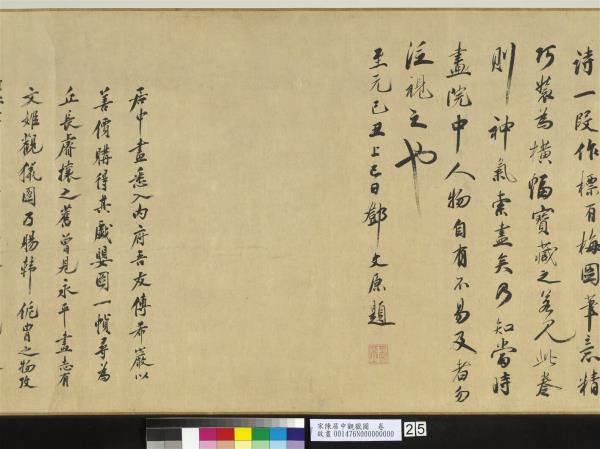 詩一段作標百梅圖筆意精
巧裝為橫幅寶藏之若見此卷
則神氣索盡矣乃知當時
畫院中人物自有不易及者勿
泛視之也
至元己丑上巳日鄧文原題
居中畫悉入內府吾友傅希巖以
善價購得其戲嬰圖一幀尋為
丘長睿攘之舊曾見永平畫志有
文姬觀獵圖乃賜韓侂胄之物攷
宋陳居中觀獵圖 卷
故畫 001476N000000000
25